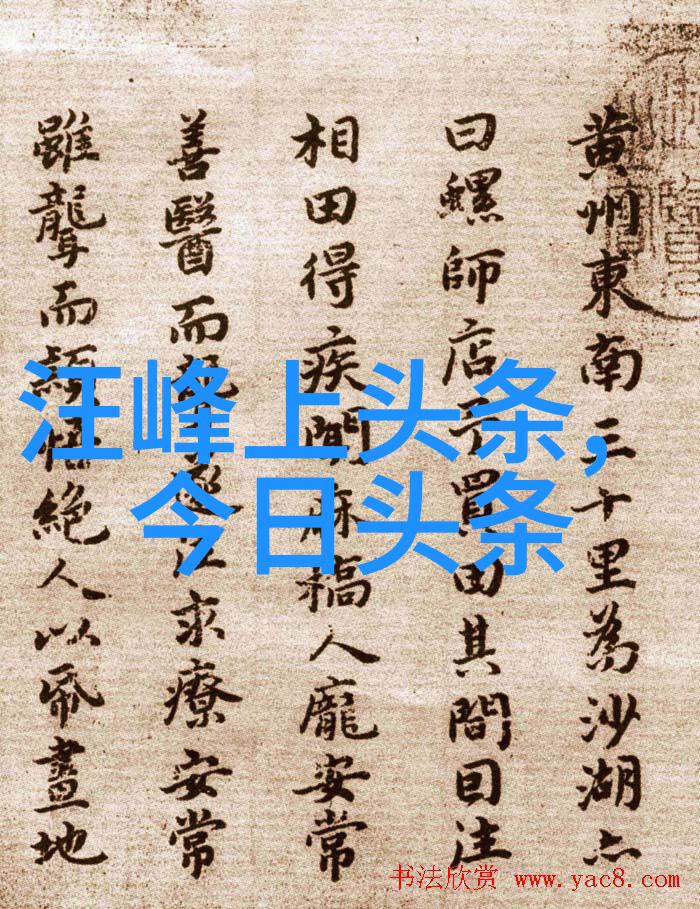 黄州東南三十里為沙湖亦
曰螺師店予買田其間因往
相田得疾聞麻橋人龐安常
善醫而聾遂往求療安常
雖聾而穎悟絕人以紙畫地
汪峰上头条,
今日头条
书法欣赏 www.yac8.com